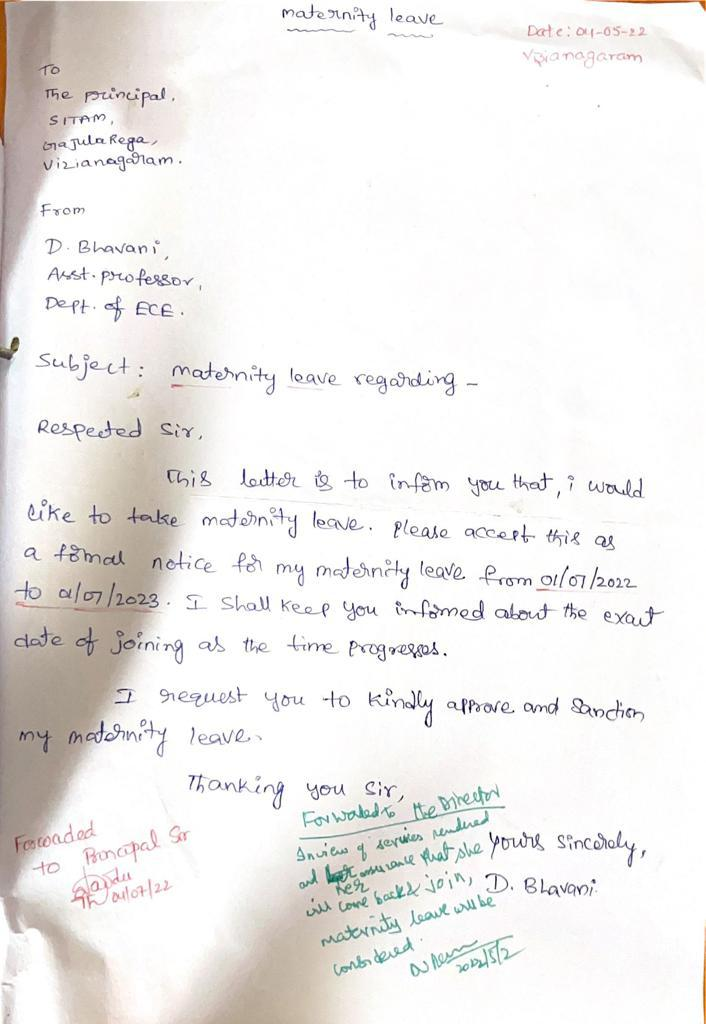 maternity leave
Date: 04-05-22
Vizianagaram
To
The principal,
SITAM,
Gajula Rega,
Vizianagaram.
From
D. Bhavani,
Asst. professor,
Dept. of ECE.
Subject: maternity leave regarding -
Respected Sir,
This letter is to inform you that, i would
like to take maternity leave. please accept this as
a formal notice for my maternity leave from 01/07/2022
to 01/07/2023. I shall keep you informed about the exact
date of joining as the time progresses.
I request you to kindly approve and Sanction
my maternity leave.
Thanking you Sir,
Yours Sincerely,
D. Bhavani
Forwaded
to Principal Sir
04/07/22
Forwarded to the Director
Inview of services rendered
and her assurance that she
will come back & join,
maternity leave will be
considered.
2022/5/2